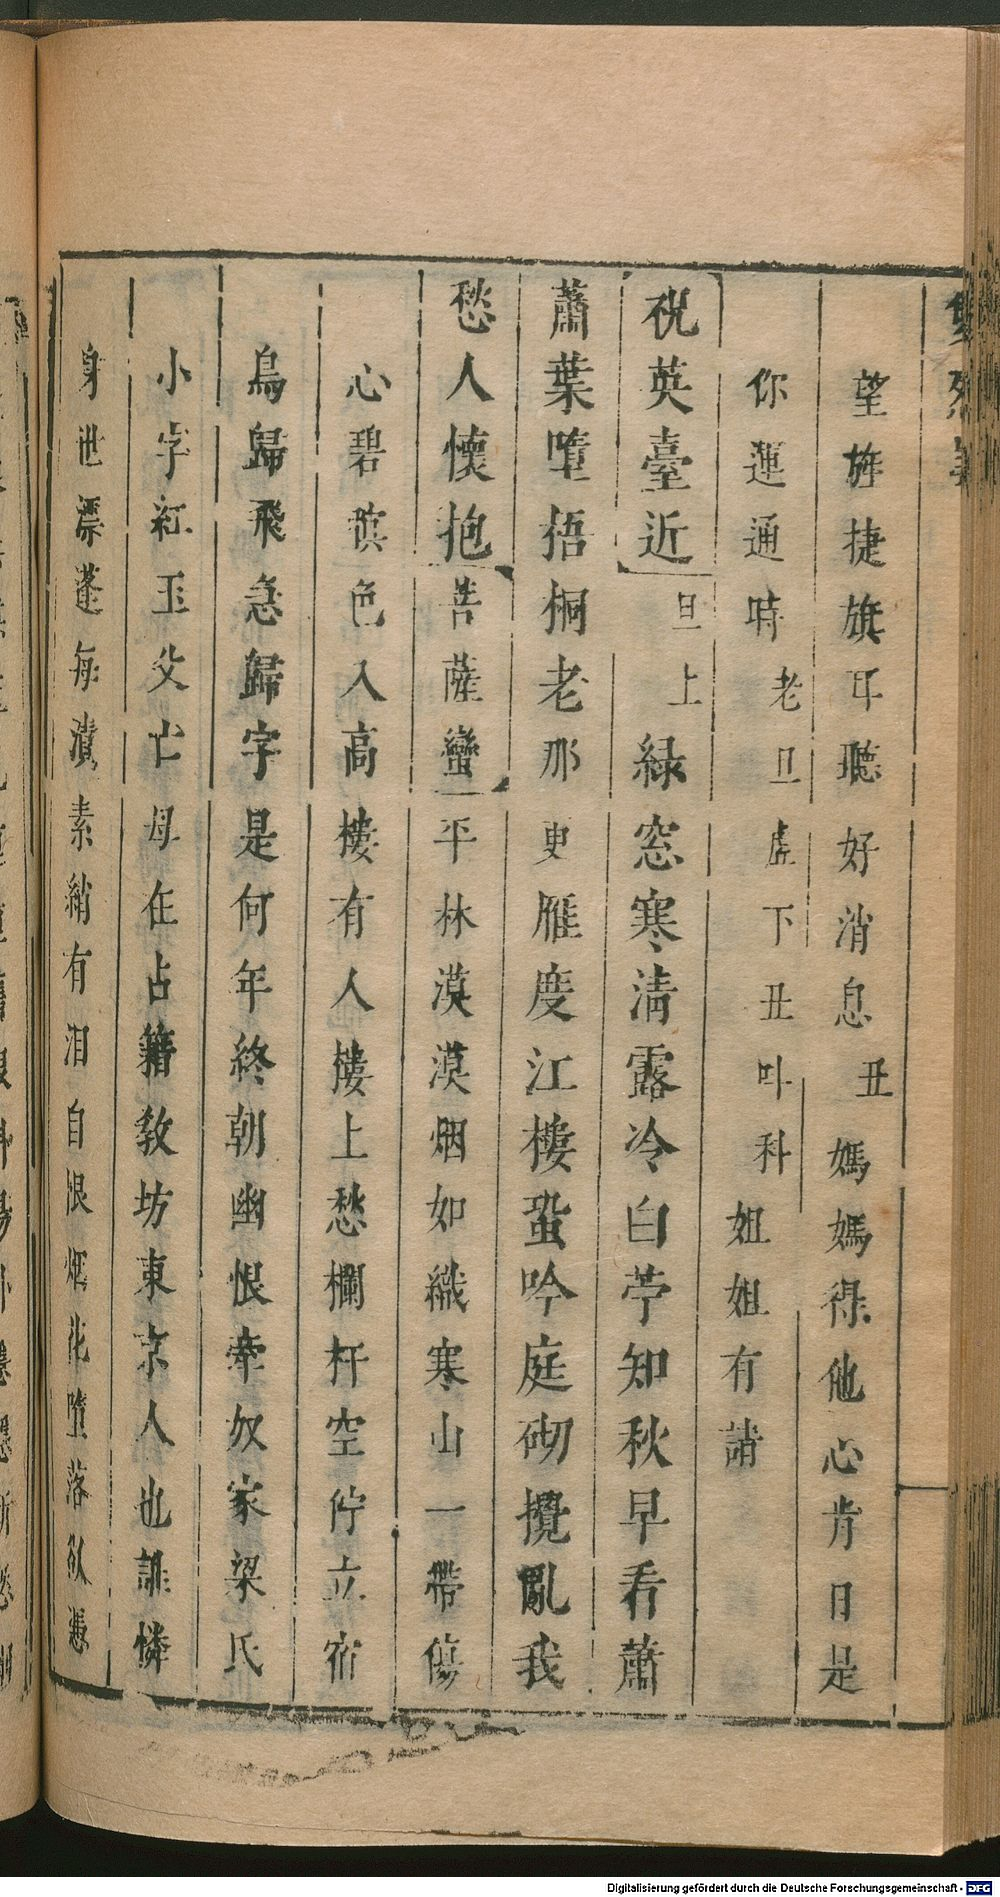 望旌捷旗耳聽好消息丑媽媽得他心肯日是
你運通時老旦虛下丑叫科姐姐有請
祝英臺近旦上緑窓寒清露冷白苧知秋早看蕭
蕭葉墮梧桐老那更雁度江樓蛩吟庭砌攪亂我
愁人懷抱菩薩蠻平林漠漠烟如織寒山一帶傷
心碧暝色入高樓有人樓上愁欄杆空佇立宿
鳥歸飛急歸字是何年終朝幽恨牽奴家梁氏
小字紅玉父亡母在占籍敎坊東京人也誰憐
身世漂蓬每漬素綃有泪自恨烟花墮落欲憑
Digitalisierung gefördert durch die Deutsche Forschungsgemeinschaft - DFG